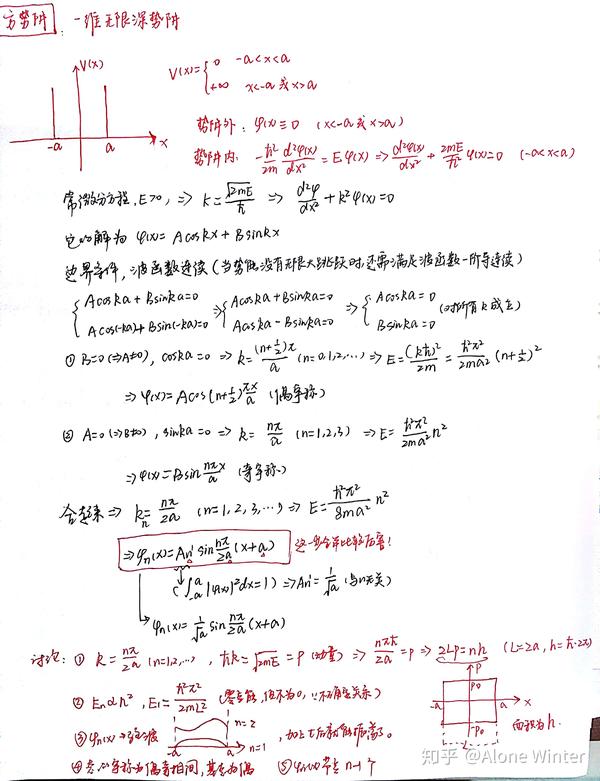 方势阱:一维无限深势阱
V(x)
-a a x
V(x)={ 0 -a<x<a
+∞ x<-a 或 x>a
势阱外: φ(x)≡0 (x<-a 或 x>a)
势阱内: -ħ²/2m d²φ(x)/dx² = Eφ(x) ⇒ d²φ(x)/dx² + 2mE/ħ² φ(x)=0 (-a<x<a)
常微分方程, E>0, ⇒ k=√2mE/ħ ⇒ d²φ/dx² + k²φ(x)=0
它的解为 φ(x)= Acoskx + Bsinkx
边界条件, 波函数连续(当势能没有无限大跳跃时,还需满足波函数一阶导连续)
{ Acoska+Bsinka=0 ⇒ { Acoska+Bsinka=0 ⇒ { Acoska=0
Acos(-ka)+Bsin(-ka)=0 Acoska-Bsinka=0 Bsinka=0 (对所有k成立)
① B=0(⇒A≠0), coska=0 ⇒ k=(n+½)π/a (n=0,1,2,…) ⇒ E=(kħ)²/2m = ħ²π²/2ma² (n+½)²
⇒ φ(x)=Acos(n+½)πx/a (偶宇称)
② A=0(⇒B≠0), sinka=0 ⇒ k=nπ/a (n=1,2,3) ⇒ E=ħ²π²/2ma² n²
⇒ φ(x)=Bsin nπx/a (奇宇称)
合起来 ⇒ kₙ=nπ/2a (n=1,2,3,…) ⇒ E=ħ²π²/8ma² n²
⇒ φₙ(x)=An' sin nπ/2a (x+a) 这一步合并比较厉害!
(∫₋ₐᵃ |φ(x)|²dx=1) ⇒ An'=1/√a (与n无关)
φₙ(x)=1/√a sin nπ/2a (x+a)
讨论: ① k=nπ/2a (n=1,2,…), ħk=√2mE=p (动量) ⇒ nπħ/2a=p ⇒ 2Lp=nh (L=2a, h=ħ·2π)
② Eₙ∝n², E₁=ħ²π²/2mL² (零点能, 但不为0, ∵不确定关系)
p
p₀
-a a x
-p₀
L
面积为h.
③ φₙ(x)→ n=2
-a a n=1
④ 宇称为偶奇相间, 基态为偶 ⑤ φₙ(x)节点n-1个
知乎 @Alone Winter